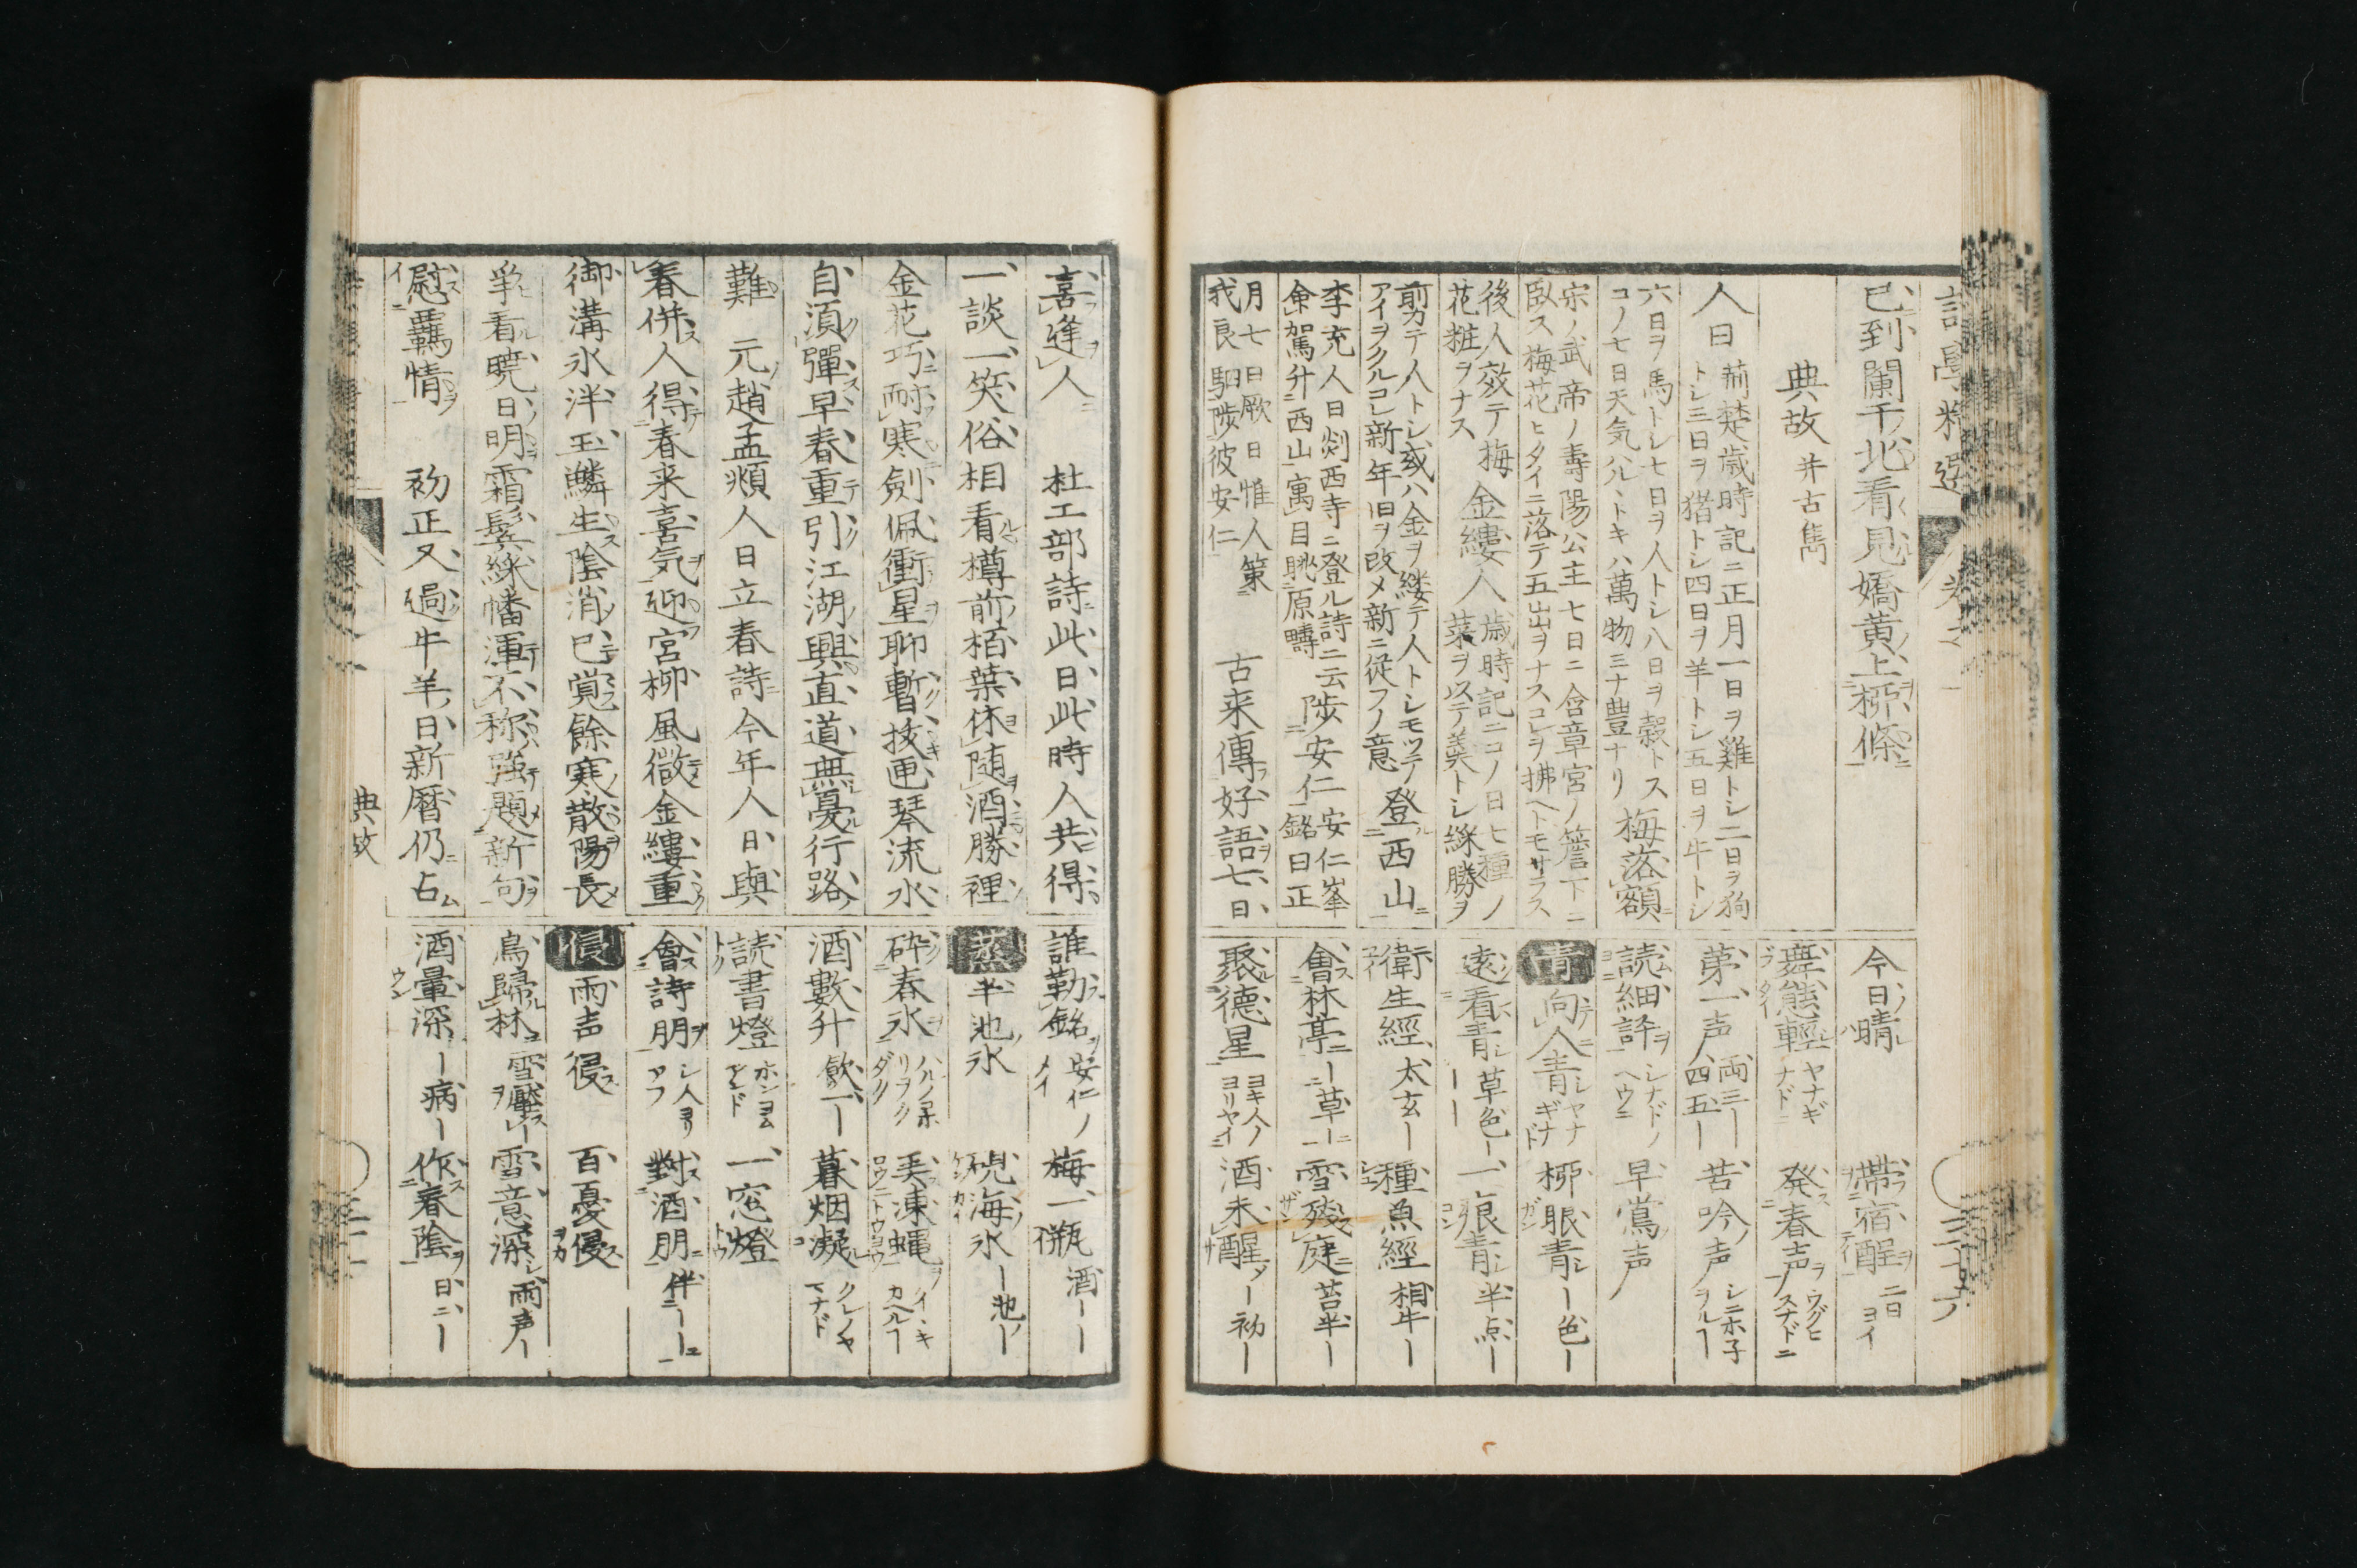 已到闌干北看見嬌黄上柳條
典故 并古雋
人日 荊楚歳時記ニ正月一日ヲ雞トシ二日ヲ狗
トシ三日ヲ猪トシ四日ヲ羊トシ五日ヲ牛トシ
六日ヲ馬トシ七日ヲ人トシ八日ヲ穀トス
コノ七日天気ハルヽトキハ萬物ミナ豊ナリ 梅落額
宋ノ武帝ノ壽陽公主七日ニ含章宮ノ簷下ニ
臥ス梅花ヒタイニ落テ五出ヲナスコレヲ拂ヘトモサラス
後人效テ梅
花粧ヲナス 金縷人 歳時記ニコノ日七種ノ
菜ヲ以テ羹トシ綵勝ヲ
前カテ人トシ或ハ金ヲ縷テ人トシモツテ
アイヲクルコレ新年旧ヲ改メ新ニ従フノ意 登西山
李充人日剡西寺ニ登ル詩ニ云
命駕升西山寓目眺原疇 陟安仁 安仁峯
銘曰正
月七日厥日惟人策
我良駟陟彼安仁 古来傳好語七日
今日晴 帯宿酲 二日ヨイ
舞態輕 ヤナギナドニ 発春声 ウグヒスナドニ
第一声 両三ー 四五ー 苦吟声
読細評 早鶯声
青 向人青 ヤナギナド 柳眼青 ー色ー
遠看青 草色ー ーー 一痕青 半点ー
衛生經 太玄ー 種魚經 相牛ー
會林亭 ー草ー 雪残庭 苔半ー
聚徳星 ヨキ人ノヨリヤイ 酒未醒 ー初ー
喜逢人 杜工部詩此日此時人共得
一談一笑俗相看樽前栢葉休随酒勝裡
金花巧耐寒劍佩衝星聊暫抜匣琴流水
自須彈早春重引江湖興直道無憂行路
難 元趙孟頫人日立春詩今年人日與
春併人得春来喜気迎宮柳風微金縷重
御溝氷泮玉鱗生陰消已覚餘寒散陽長
爭看曉日明霜鬢綵幡渾不称強題新句
慰羈情 初正又過牛羊日新暦仍占
典故
誰勒銘 安仁ノ 梅一瓶 酒ーー
蒸 半池氷 硯海氷 ー池ー
砕春氷 美凍蠅
酒數升 飲一ー 暮烟凝 クレノヤマナド
読書燈 ホンヨムアンド 一窓燈
會詩朋 對酒朋 伴ーー
侵 雨声侵 百憂侵
鳥歸林 雪壓ー 雪意深 雨声ー
酒暈深 ー病ー 作春陰 日ニー